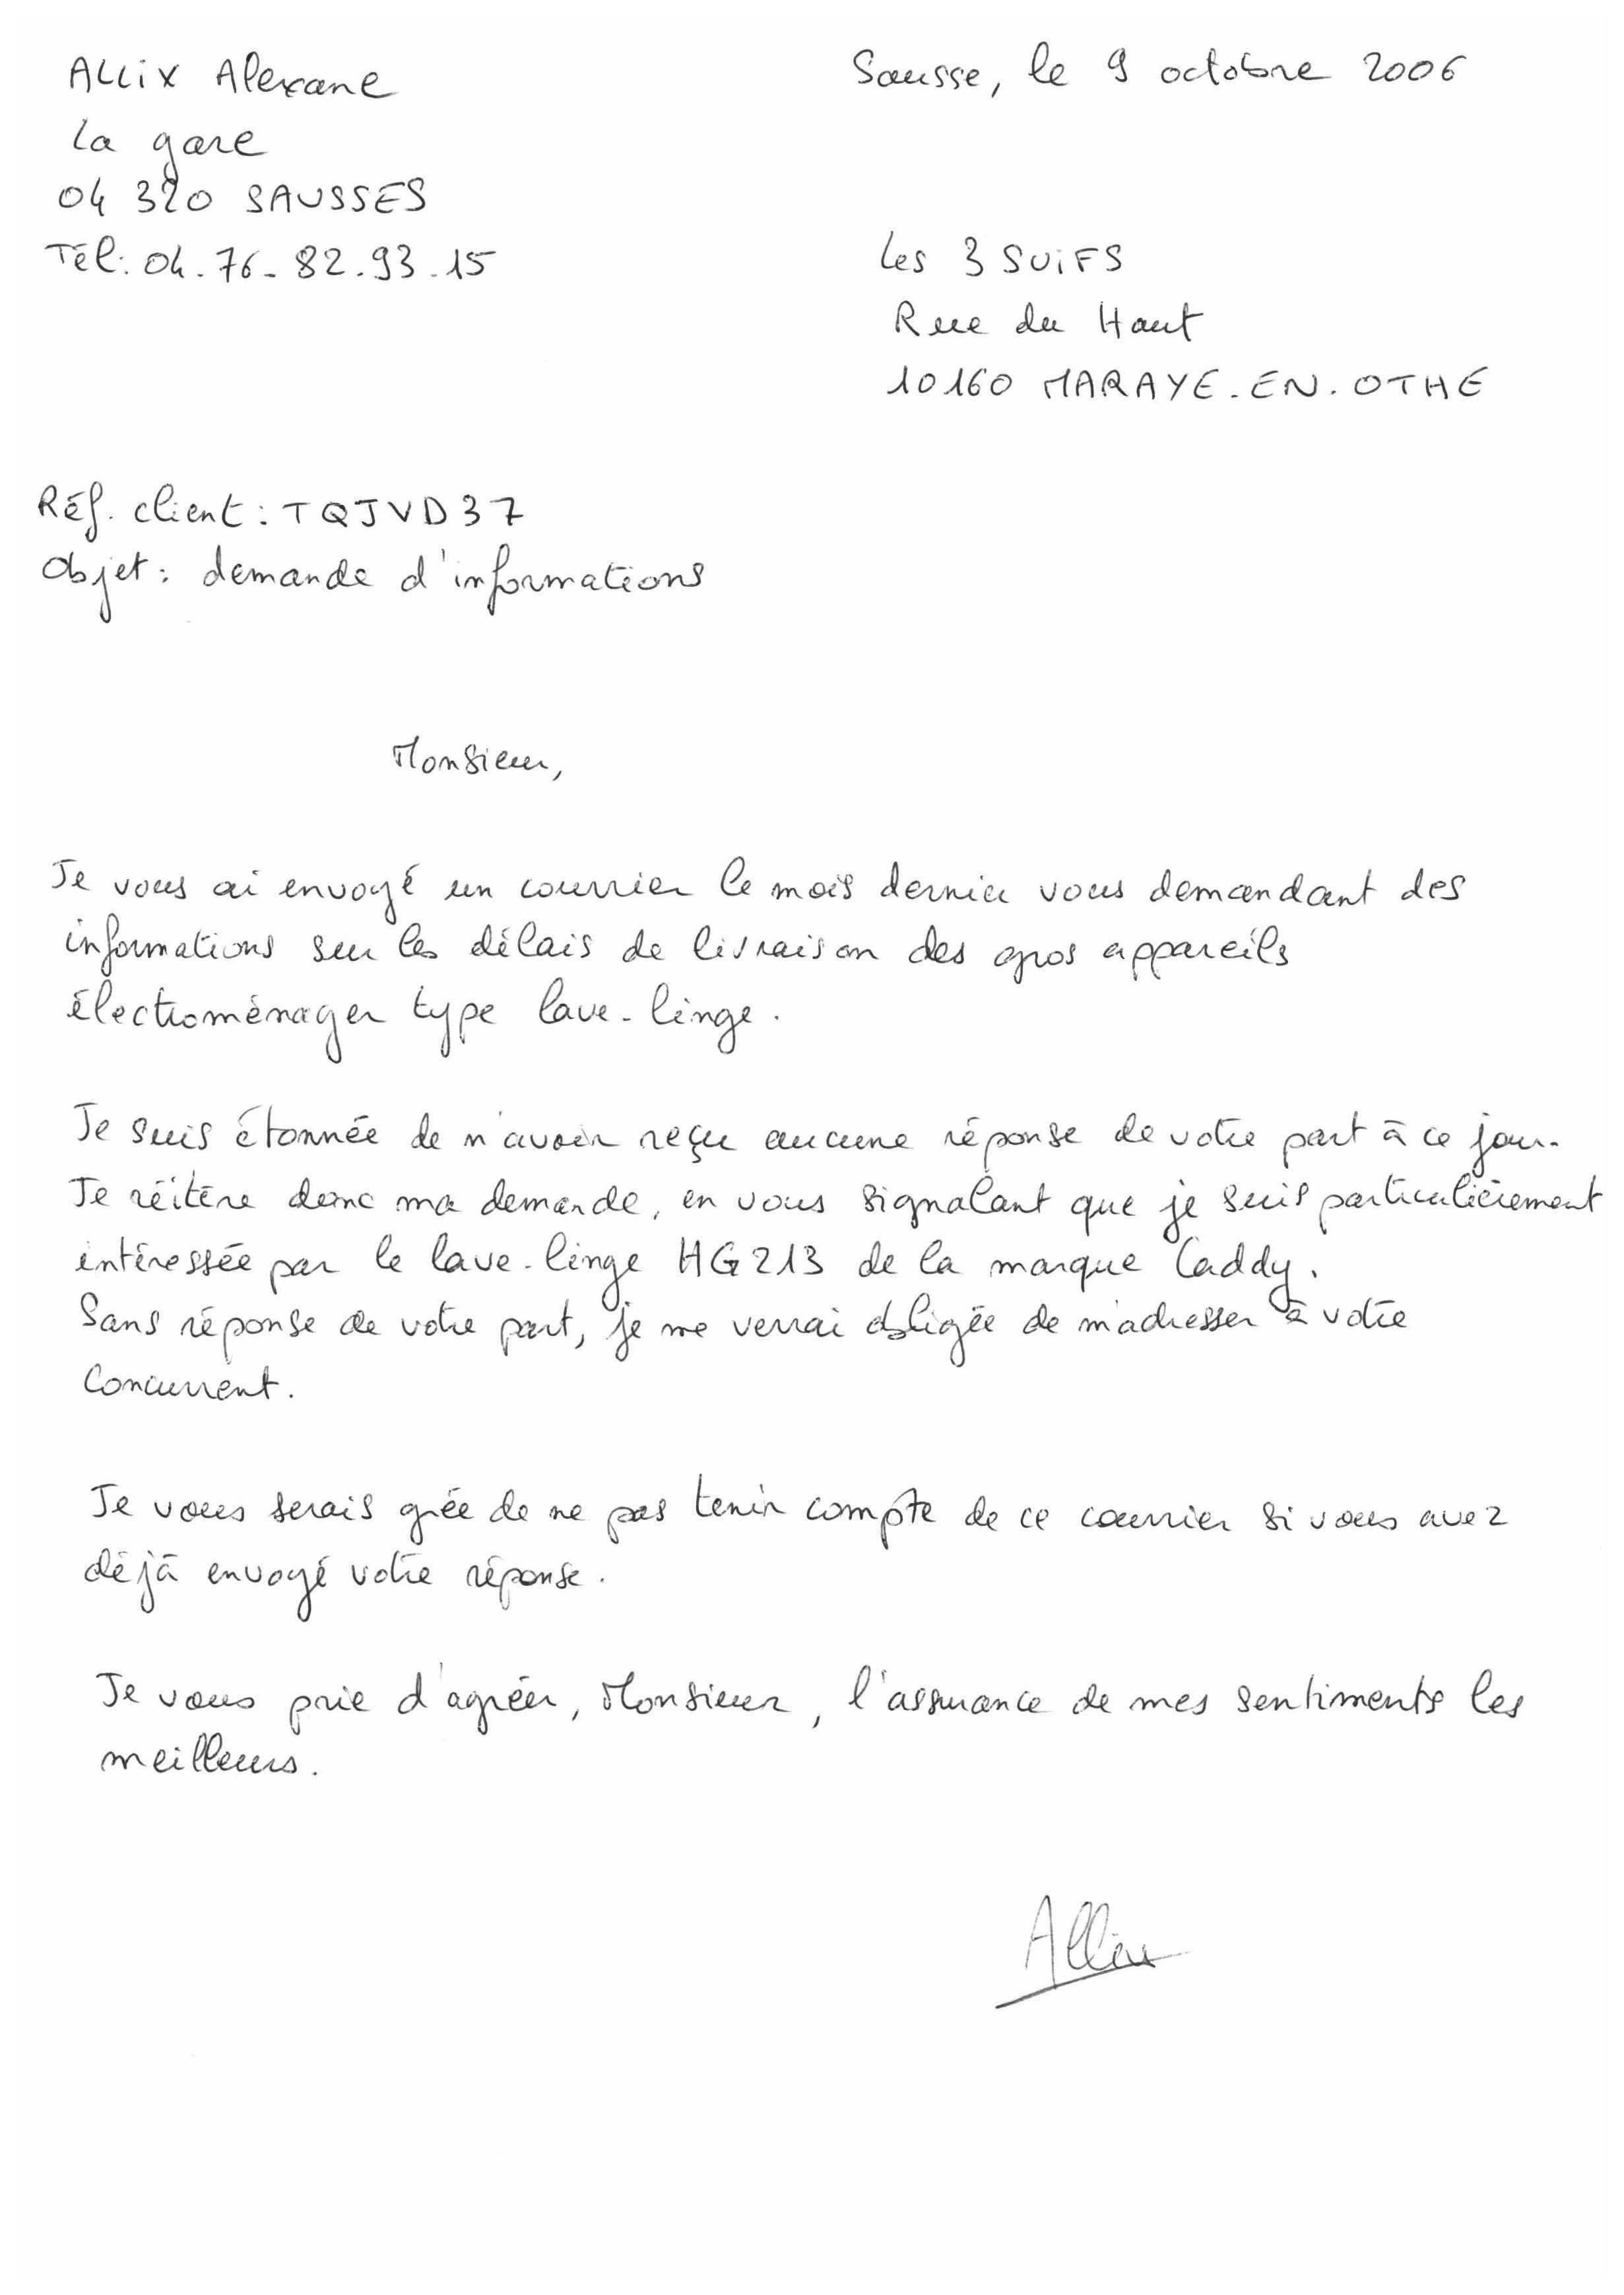 ALLIX Alexane
La gare
04 320 SAUSSES
Tél: 04.76.82.93.15
Sausse, le 9 octobre 2006
Les 3 SUIFS
Rue du Haut
10160 MARAYE.EN.OTHE
Réf. client : TQJVD37
Objet : demande d'informations
Monsieur,
Je vous ai envoyé un courrier le mois dernier vous demandant des
informations sur les délais de livraison des gros appareils
électroménager type lave-linge.
Je suis étonnée de n'avoir reçu aucune réponse de votre part à ce jour.
Je réitère donc ma demande, en vous signalant que je suis particulièrement
intéressée par le lave-linge HG213 de la marque Caddy.
Sans réponse de votre part, je me verrai obligée de m'adresser à votre
concurrent.
Je vous serais grée de ne pas tenir compte de ce courrier si vous avez
déjà envoyé votre réponse.
Je vous prie d'agréer, Monsieur, l'assurance de mes sentiments les
meilleurs.
Allix